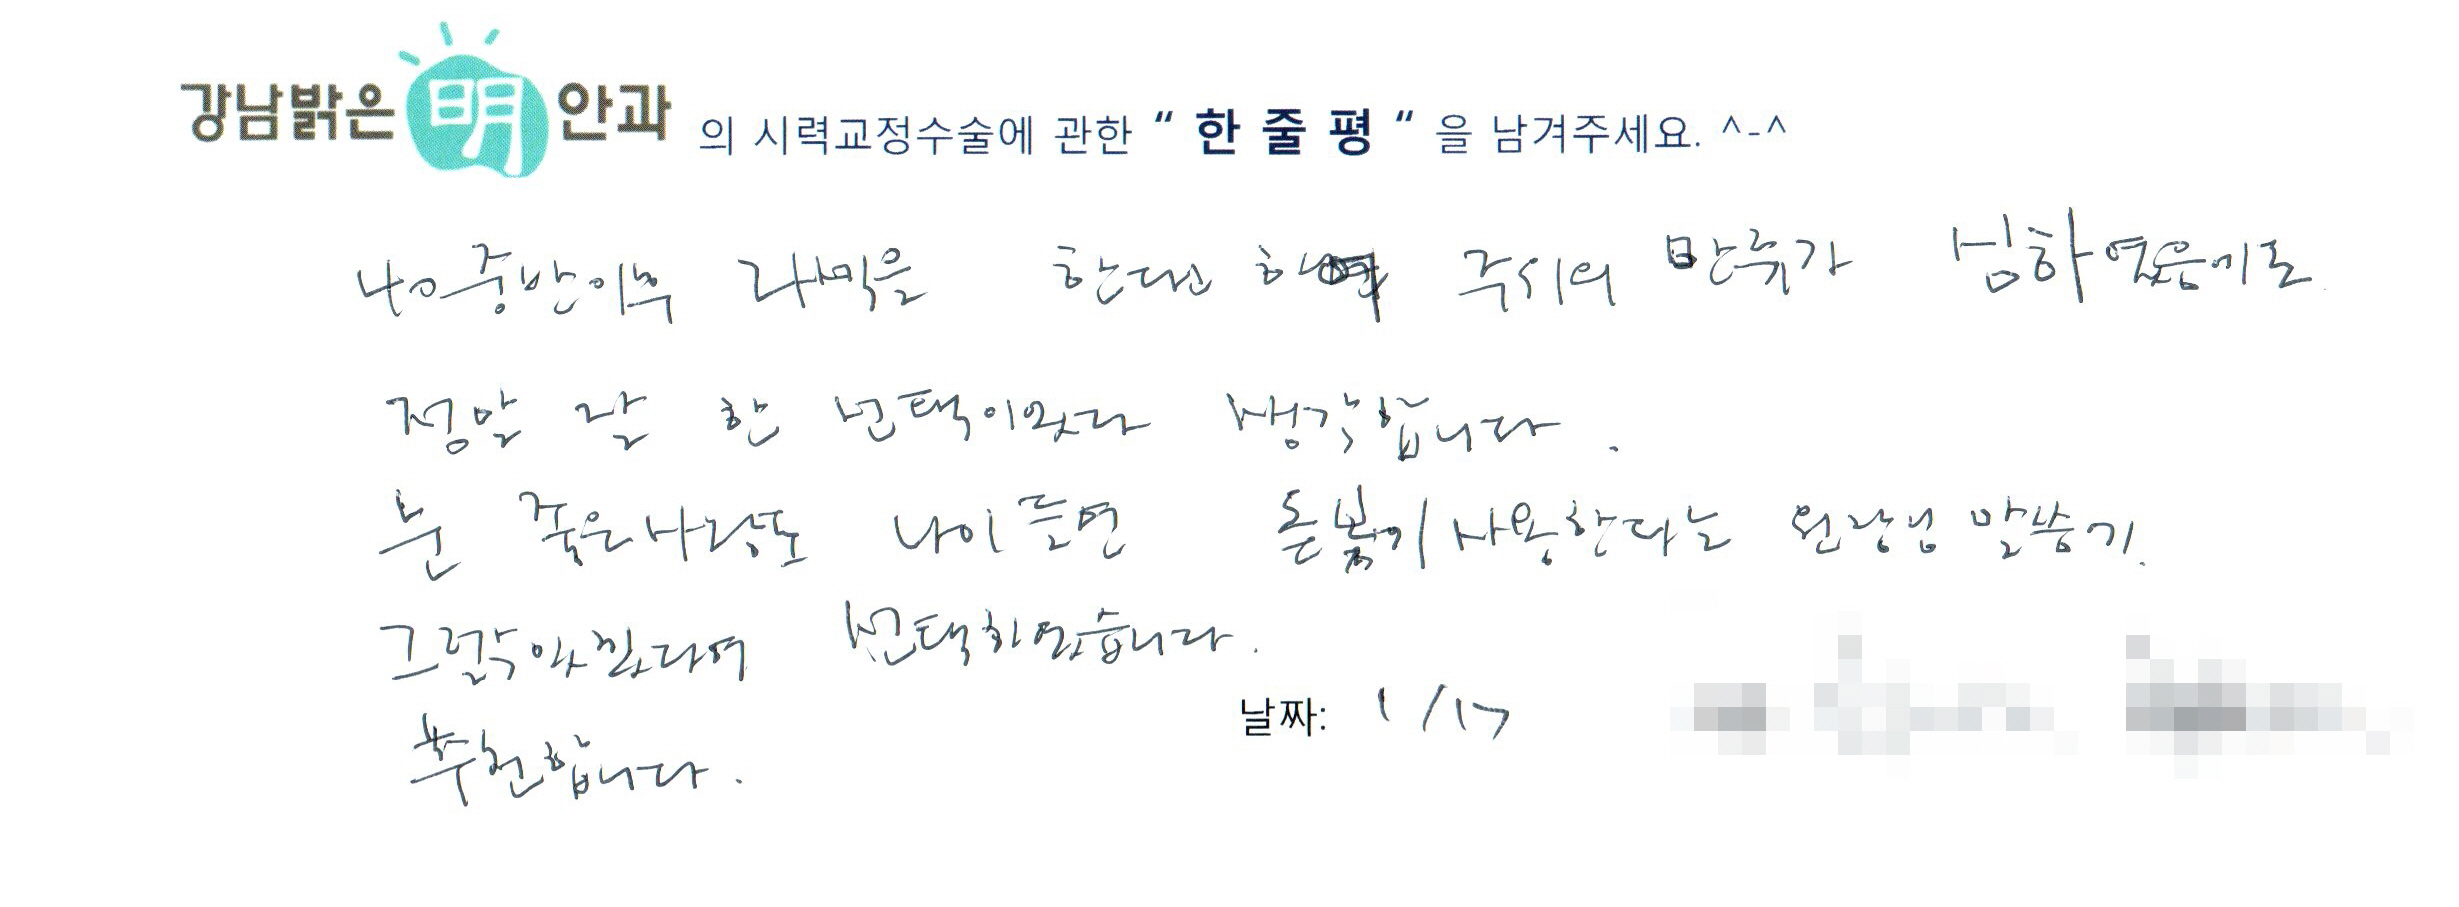 강남밝은明안과 의 시력교정수술에 관한 “ 한 줄 평 “ 을 남겨주세요. ^-^
40중반이후 라식을 한다고 하여 주위의 만류가 심하였음에도
정말 잘 한 선택이었다 생각합니다.
눈 좋은사람도 나이들면 돋보기사용한다는 원장님 말씀기.
선택하였습니다.
날짜: 1/17
추천합니다.